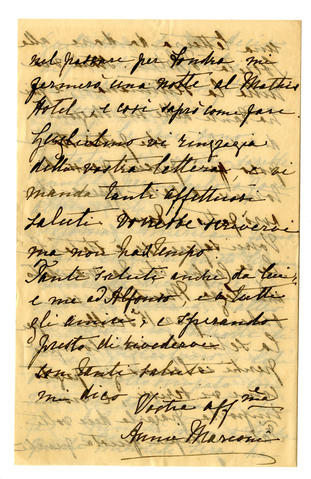 nel passare per Londra mi
fermerò una notte al Mathis
Hotel e così saprò come fare
Guglielmo vi ringrazia
della vostra lettera e vi
manda tanti affettuosi
saluti vorrebbe scrivervi
ma non ha tempo
Tanti saluti anche da lui
e me ad Alfonso e a tutti
gli amici e sperando
presto di rivedervi
con tanti saluti
mi dico
Vostra aff ma
Annie Marconi